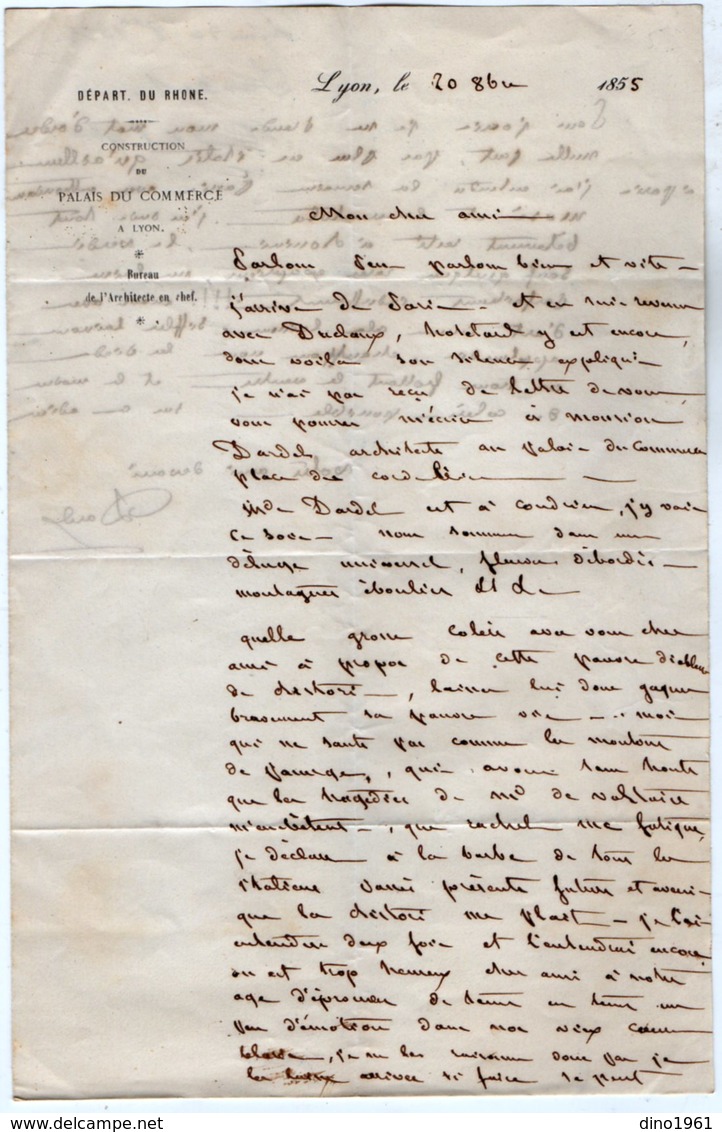 DÉPART. DU RHONE.
CONSTRUCTION
DU
PALAIS DU COMMERCE
A LYON.
Bureau
de l'Architecte en chef.
Lyon, le 20 8bre 1855
Mon cher ami
Parlons peu parlons bien et vite
j'arrive de Paris et en suis revenu
avec Duclaux, y est encore,
donc voila son silence expliqué
je n'ai pas reçu de lettre de vous,
vous pouvez m'écrire à monsieur
Dardel architecte au palais du commerce
place des cordeliers
Mde Dardel est à Condrieu, j'y vais
ce soir nous sommes dans un
déluge universel, fleuves débordés
montagnes éboulées
quelle grosse colère avez vous cher
ami à propos de cette pauvre diablesse
de Ristori, laissez lui donc gagner
bravement sa pauvre vie moi
qui ne saute pas comme les moutons
de panurge, qui avoue sans honte
que les tragédies de Mr de voltaire
m'embêtent, que rachel me fatigue,
je déclare à la barbe de tous les
italiens passés présents futurs et avenir
que la Ristori me plait je l'ai
entendue deux fois et l'entendrai encore,
on est trop heureux cher ami à notre
age d'éprouver de tems en tems un
peu d'émotion dans nos vieux coeurs
je ne les raisonne donc pas je
les laisse arriver si faire se peut
dino1961